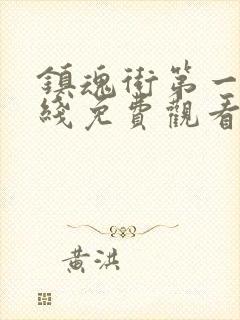 鎮魂街第一
綫免費觀看
黃洪